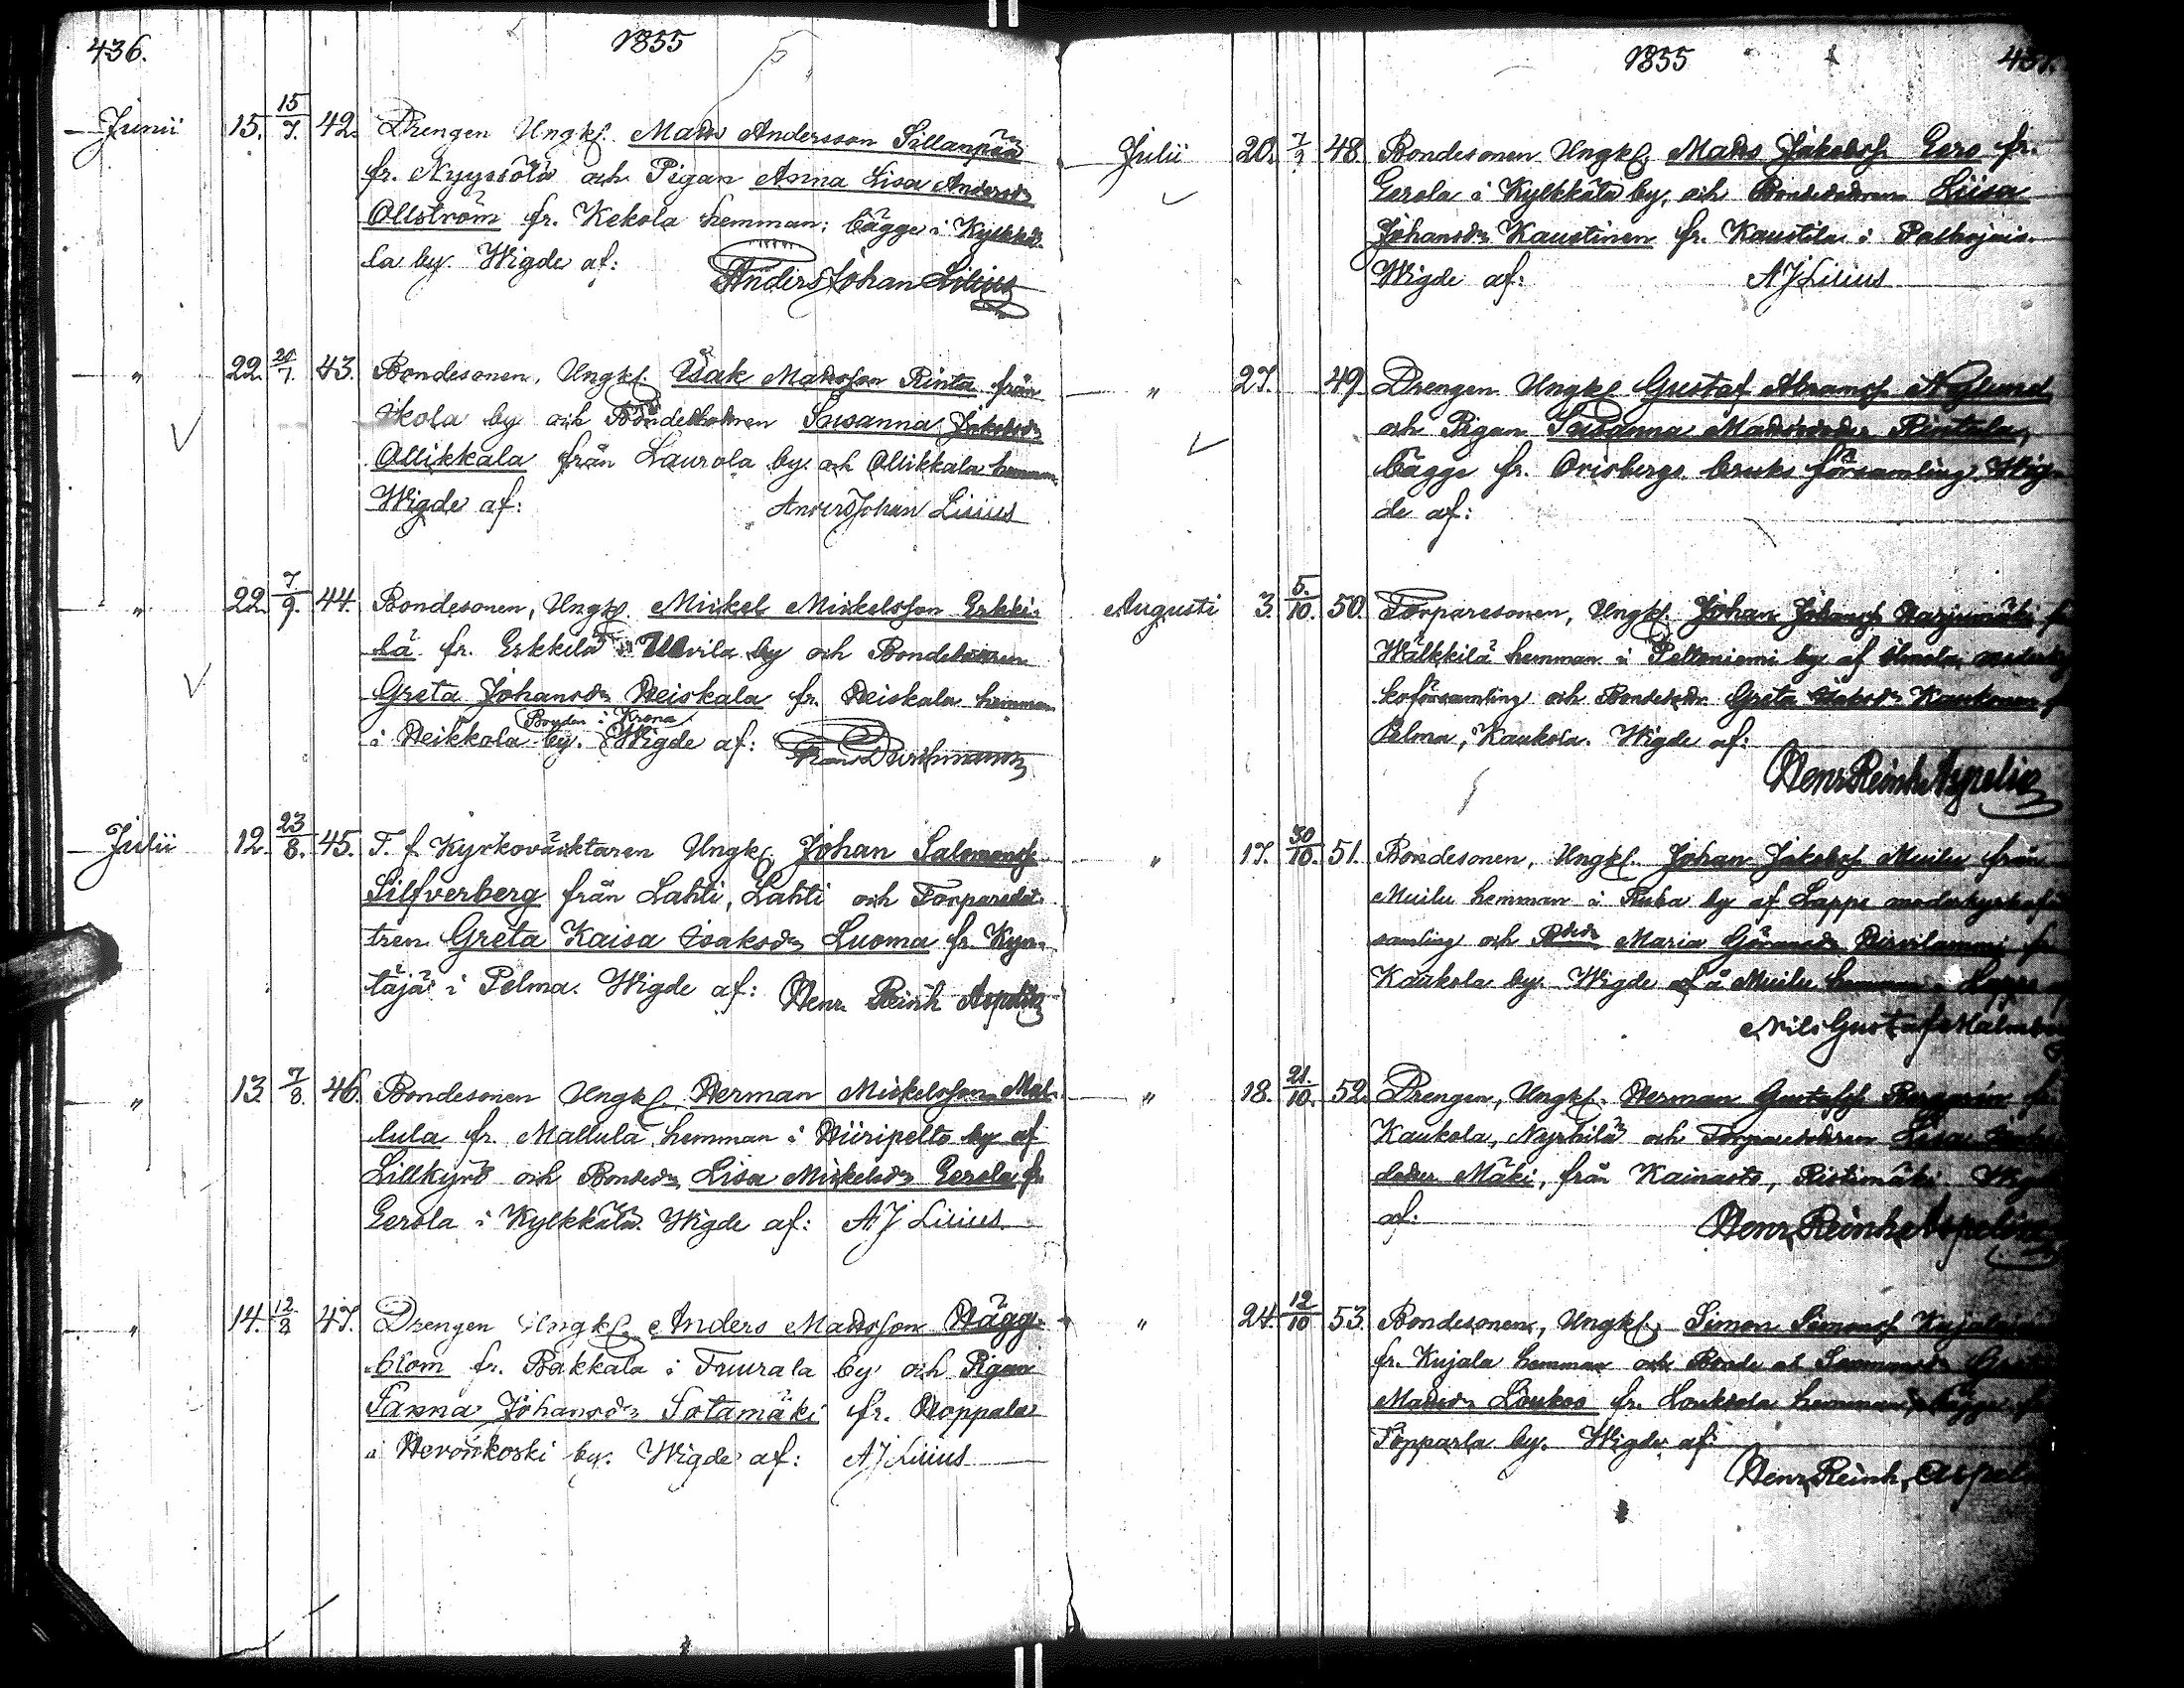 436.
1855
Junii 15. 15/7. 42. Drengen Ungk. Mats Andersson Sillanpää
fr. Nyyssölä och Pigan Anna Lisa Andersdr
Ollström fr. Kekola hemman; bägge i Kylkkä-
la by. Wigde af: Anders Johan Lilius
" 22. 20/7. 43. Bondesonen, Ungk. Isak Matsson Rinta från
Ikola by och Bondedottren Susanna Jakobsdr
Ollikkala från Laurola by och Ollikkala hemman
Wigde af: Anders Johan Lilius
" 22. 7/9. 44. Bondesonen, Ungk. Mickel Mickelsson Erkki-
lä fr. Erkkilä i Ulvila by och Bondedottren
Greta Johansdr Heiskala fr. Heiskala hemman
i Heikkola by. Wigde af: Frans Durchmann
Julii 12. 23/8. 45. T. f. Kyrkovaktaren Ungk. Johan Salomonss.
Silfverberg från Lahti, Lahti och Torparedot-
tren Greta Kaisa Isaksdr Luoma fr. Kyn-
täjä i Pelma. Wigde af: Henr. Reinh. Aspelin
" 13. 7/8. 46. Bondesonen Ungk. Herman Mickelsson Mal-
lula fr. Mallula hemman i Hiiripelto by af
Lillkyrö och Bondedr Lisa Mickelsdr Eerola fr.
Eerola i Kylkkälä. Wigde af: A J Lilius
" 14. 12/8 47. Drengen Ungk. Anders Matsson Hägg-
blom fr. Pakkala i Tuurala by och Pigan
Sanna Johansdr Sotamäki fr. Hoppala
i Hevonkoski by. Wigde af: A J Lilius
1855
437.
Julii 20. 48. Bondesonen Ungk. Mats Jakobss. Eero fr.
Eerola i Kylkkälä by, och Bondedottren Liisa
Johansdr Kaustinen fr. Kaustila i Palhojais.
Wigde af: A J Lilius
" 27. 49. Drengen Ungk. Gustaf Abramss. Nylund
och Pigan Susanna Matsdotter Rintala,
bägge fr. Orisbergs bruks församling. Wig-
de af:
Augusti 3. 5./10. 50. Torparesonen, Ungk. Johan Johanss. Harjumäki fr.
Wälkkilä hemman i Peltoniemi by af Ilmola moderkyr-
koförsamling och Bondedr Greta Isaksdr Kaukonen
Pelma, Kaukola. Wigde af:
Henr Reinh Aspelin
" 17. 30/10. 51. Bondesonen, Ungk. Johan Jakobss. Muilu från
Muilu hemman i Ruha by af Lappo moderkyrkoför
samling och Maria Göransdr fr
Kaukola by. Wigde å Muilu hemman i Lappo
Nils Gustaf Malmberg
" 18. 21./10. 52. Drengen, Ungk. Herman Gustafss. Berggren fr.
Kaukola, Nyrhilä och Torparedottren Lisa
dotter Mäki, från Kainasto, Ristimäki. Wigde
af: Henr Reinh Aspelin
" 24. 12/10 53. Bondesonen, Ungk. Simon Simonss. Kujala
fr. Kujala hemman och Bonde
Matsdr Loukos fr. Louksola hemman, bägge fr
Topparla by. Wigde af:
Henr, Reinh, Aspelin